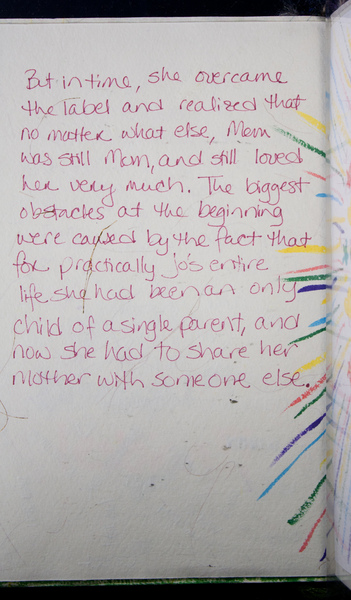 But in time, she overcame
the label and realized that
no matter what else, Mom
was still Mom, and still loved
her very much. The biggest
obstacles at the beginning
were caused by the fact that
for practically Jo's entire
life she had been an only
child of a single parent, and
now she had to share her
mother with someone else.